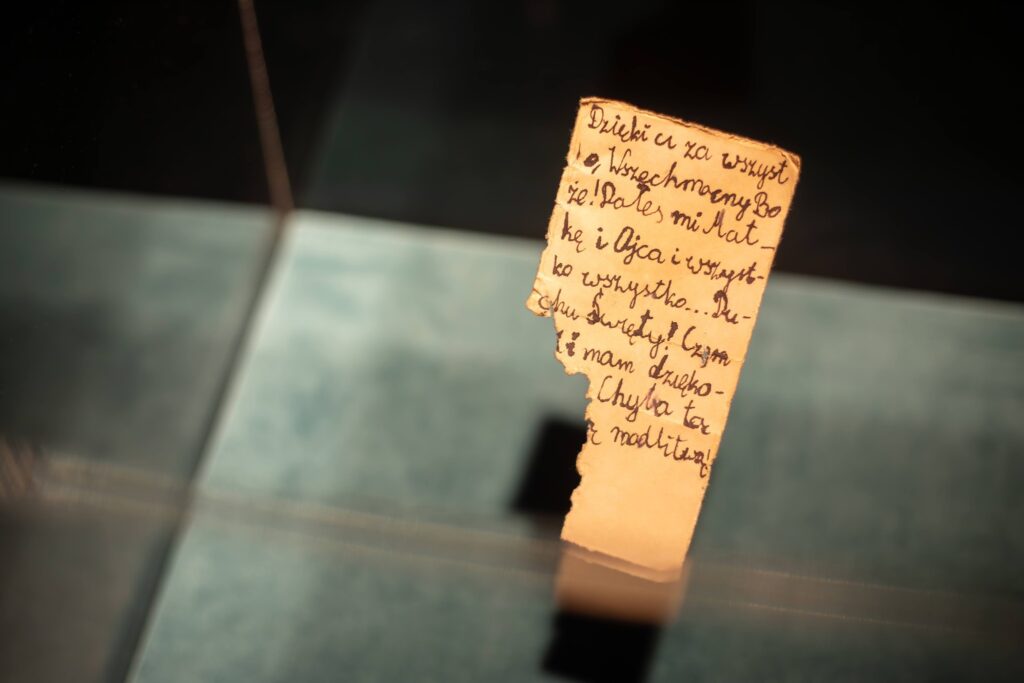 Dzięki ci za wszyst
o, Wszechmocny Bo
że! Dałeś mi Mat-
kę i Ojca i wszyst-
ko wszystko... Du-
chu Święty! Czym
Ci mam dzięko-
Chyba tą
modlitwą!